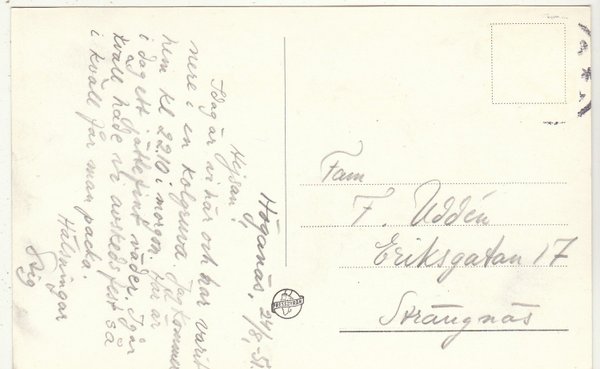 Höganäs, 24/8, 51.
Hejsan!
Idag är vi här och har varit
nere i en kolgruva. Jag kommer
hem kl 22.10 i morgon. Här är
i dag ett jättefint väder. Igår
kväll hade vi avskedsfest så
i kväll får man packa.
Hälsningar
Stig
Fam
F. Uddén
Eriksgatan 17
Strängnäs